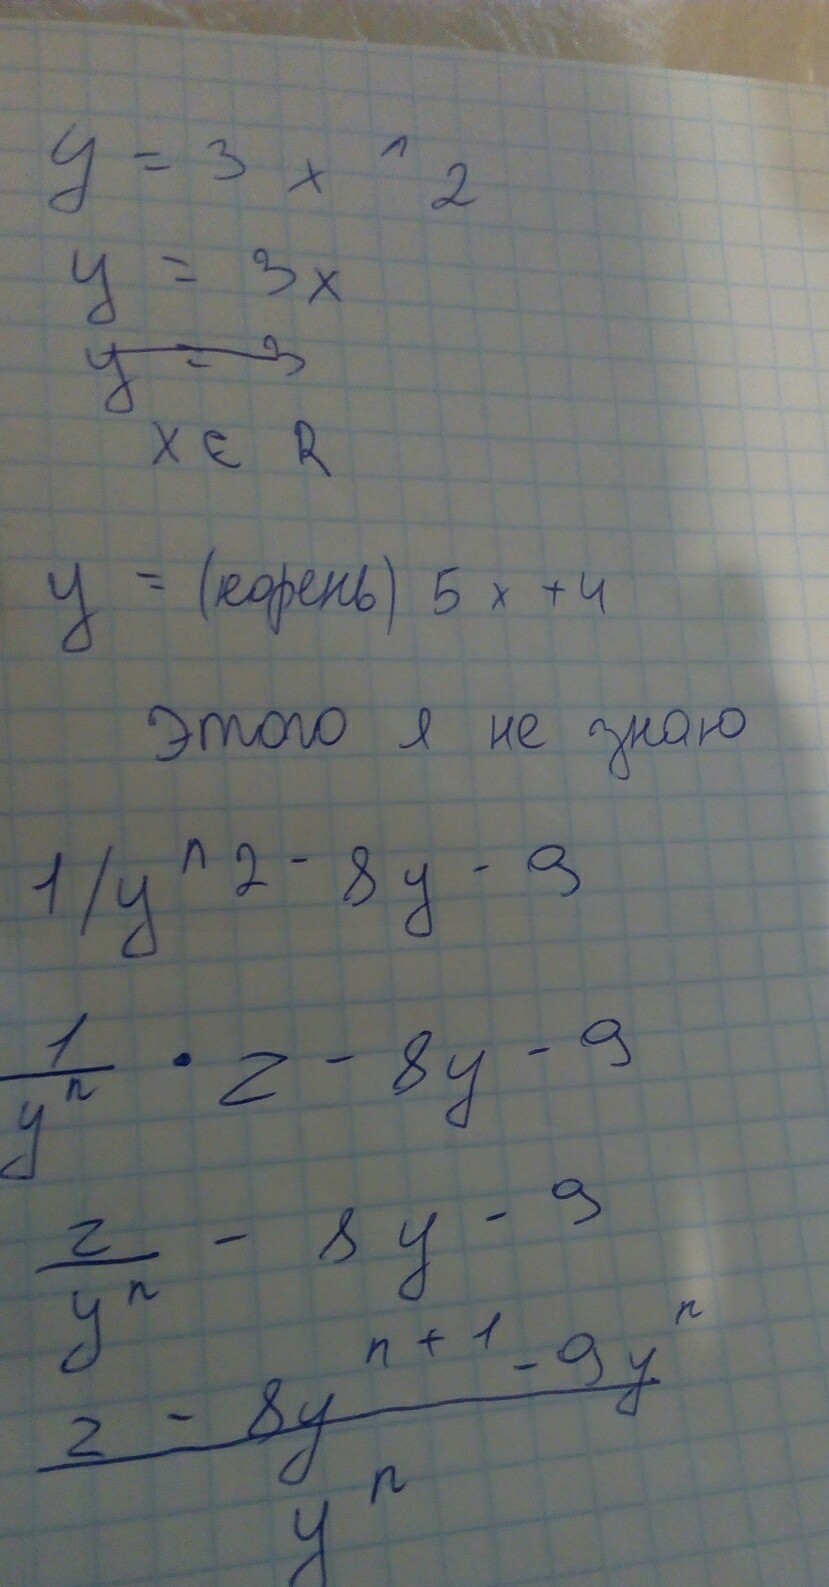 y = 3 x ^ 2
y = 3x
y = 3
x ∈ R
y = (корень) 5 x + 4
Этого я не знаю
1/y^n 2 - 8y - 9
1/y^n · 2 - 8y - 9
2/y^n - 8y - 9
(2 - 8y^(n+1) - 9y^n)/y^n